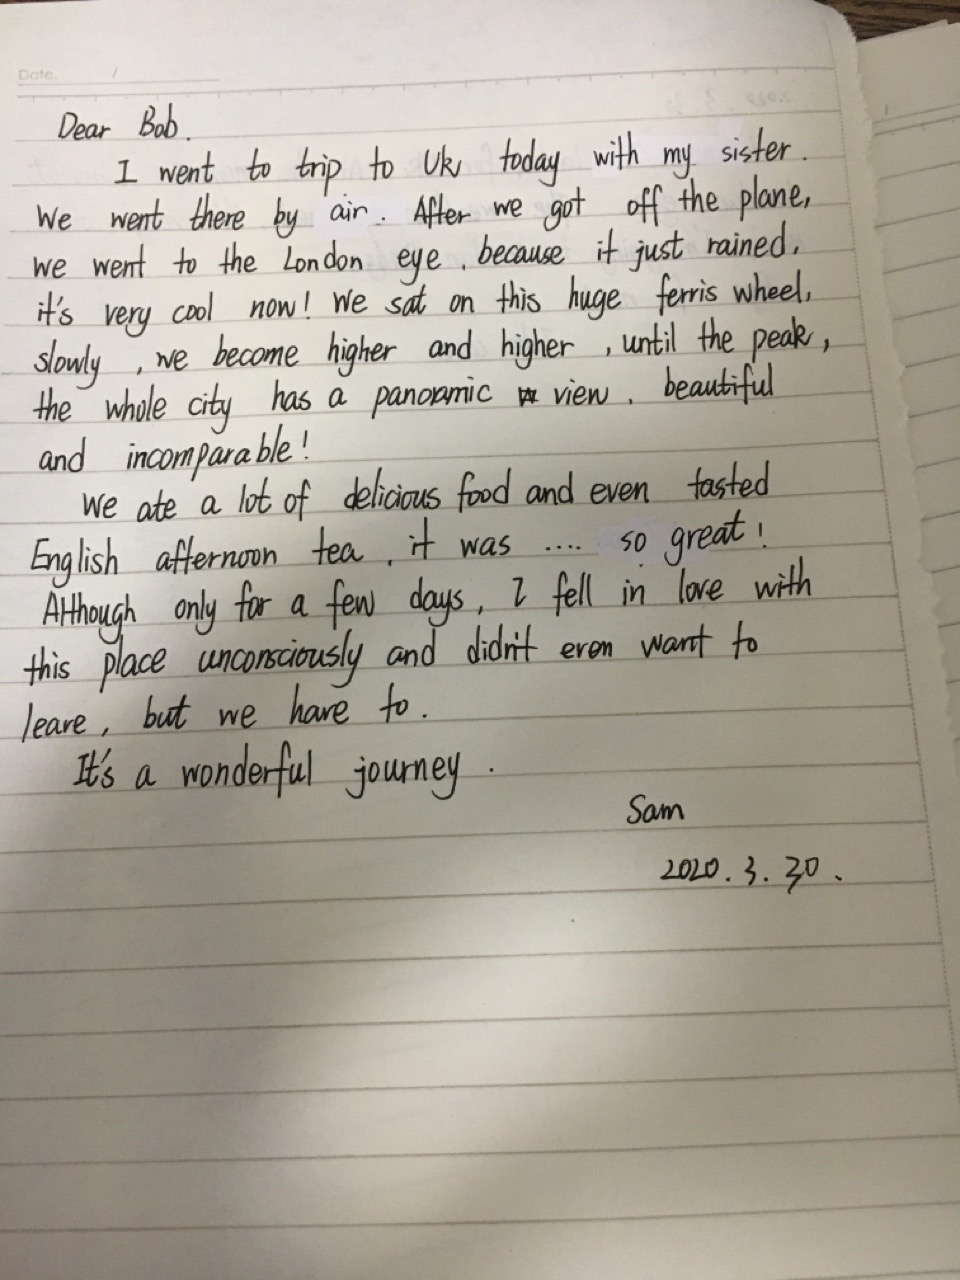 Date. /
Dear Bob.
I went to trip to Uk today with my sister.
We went there by air. After we got off the plane,
we went to the London eye, because it just rained,
it's very cool now! We sat on this huge ferris wheel,
slowly, we become higher and higher, until the peak,
the whole city has a panoramic view. beautiful
and incomparable!
We ate a lot of delicious food and even tasted
English afternoon tea, it was .... so great!
Although only for a few days, I fell in love with
this place unconsciously and didn't even want to
leave, but we have to.
It's a wonderful journey.
Sam
2020.3.30.